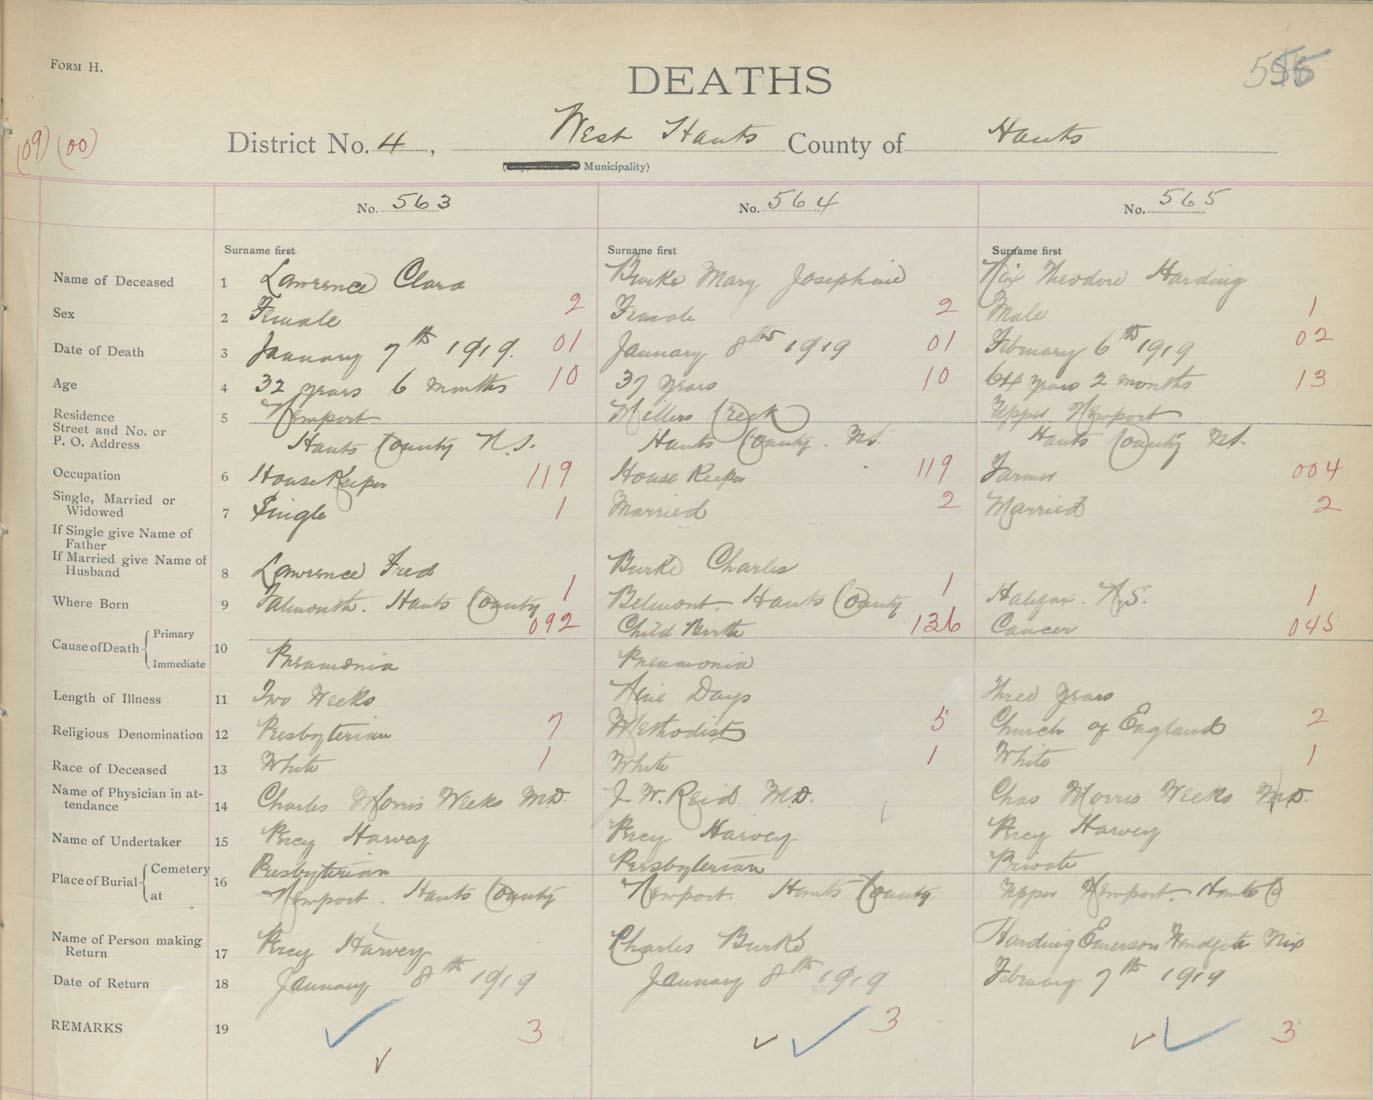 FORM H.
DEATHS
(09) (00)
District No. 4, West Hants County of Hants
Municipality)
No. 563
No. 564
No. 565
Surname first
Surname first
Surname first
Name of Deceased 1 Lawrence Clara
Burke Mary Josephine
Nix Theodore Harding
Sex 2 Female 2
Female 2
Male 1
Date of Death 3 January 7th 1919. 01
January 8th 1919 01
February 6th 1919 02
Age 4 32 years 6 months 10
37 years 10
64 years 2 months 13
Residence
Street and No. or
P. O. Address
5 Newport
Hants County N.S.
Millers Creek
Hants County. N.S.
Upper Newport
Hants County N.S.
Occupation 6 HouseKeeper 119
House Keeper 119
Farmer 004
Single, Married or
Widowed
7 Single 1
Married 2
Married 2
If Single give Name of
Father
If Married give Name of
Husband
8 Lawrence Fred
Burke Charles
Where Born 9 Falmouth. Hants County 1
Belmont. Hants County 1
Halifax. N.S. 1
Cause of Death { Primary
Immediate
10
092
Pneumonia
Child Birth 136
Pneumonia
Cancer 045
Length of Illness 11 Two Weeks
Days
Three years
Religious Denomination 12 Presbyterian 7
Methodist 5
Church of England 2
Race of Deceased 13 White 1
White 1
White 1
Name of Physician in at-
tendance
14 Charles Morris Weeks M.D.
J. W. Reid. M.D.
Chas Morris Weeks M.D.
Name of Undertaker 15 Percy Harvey
Percy Harvey
Percy Harvey
Place of Burial { Cemetery
at
16 Presbyterian
Newport. Hants County
Presbyterian
Newport. Hants County
Private
Upper Newport. Hants Co
Name of Person making
Return
17 Percy Harvey
Charles Burke
Harding Emerson Nix
Date of Return 18 January 8th 1919
January 8th 1919
February 7th 1919
REMARKS 19
3
3
3